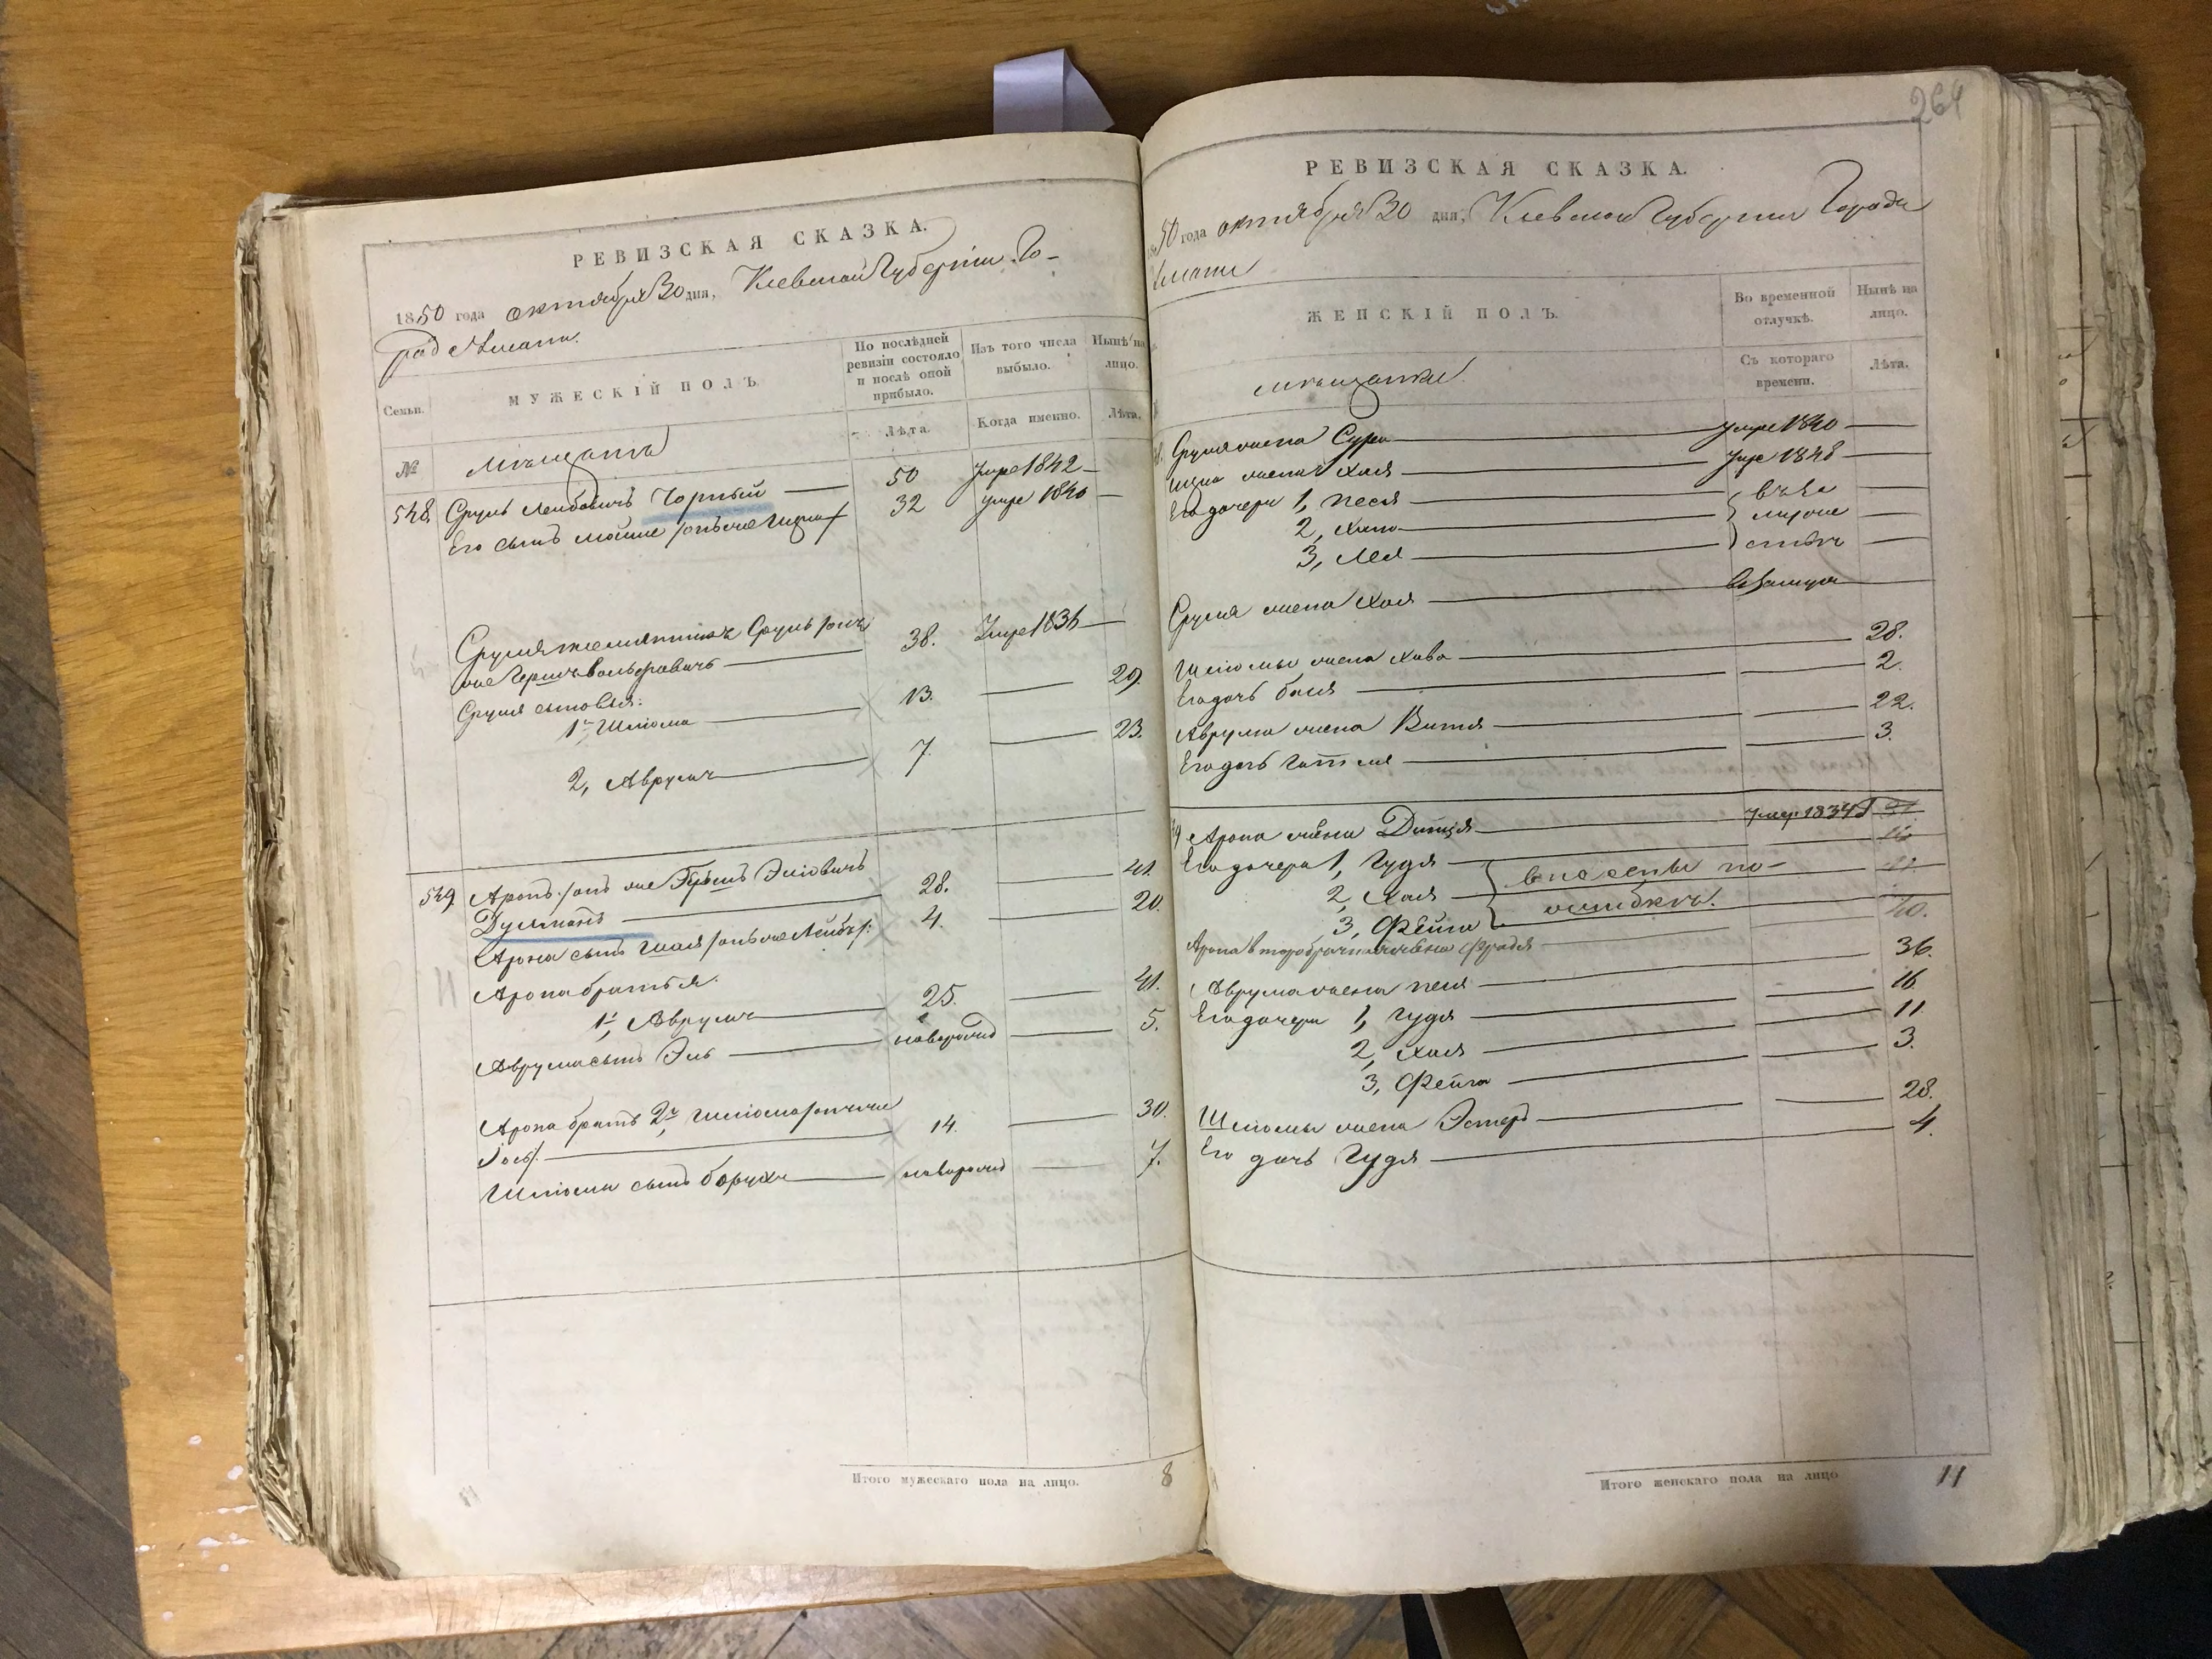 РЕВИЗСКАЯ СКАЗКА.
1850 года октября 30 дня, Киевской Губернии Го-
род Умани.
Семьи.
МУЖЕСКІЙ ПОЛЪ.
По послѣдней ревизіи состояло и послѣ оной прибыло.
Изъ того числа выбыло.
Нынѣ на лицо.
№
Мѣщане
Лѣта.
Когда именно.
Лѣта.
548. Сруль Лейбовичъ Чорный 50 Умре 1842
Его сынъ Мошко /онъ же 32 умре 1840
Сруля Сруль /онъ
же Гершъ Вольфовичъ 38. Умре 1836
Сруля сыновья:
1й Шліома 13. 29.
2, Аврумъ 7. 23.
549. Аронъ /онъ же Гершъ Эліовичъ
Дульманъ 28. 41.
Арона сынъ Шая /онъ же Лейба/: 4. 20.
Арона братья:
1й, Аврумъ 25. 41.
Аврума сынъ Эль новорожд 5.
Арона братъ 2й Шліома /онъ же
Іось/. 14. 30.
Шліомы сынъ Борухъ новорожд 7.
Итого мужескаго пола на лицо. 8
264
РЕВИЗСКАЯ СКАЗКА.
1850 года октября 30 дня, Киевской Губернии Города
Умани
ЖЕНСКІЙ ПОЛЪ.
Во временной отлучкѣ.
Нынѣ на лицо.
Мѣщанки.
Съ котораго времени.
Лѣта.
Сруля жена Сура умре 1840
жена Хая Умре 1848
Его дочери 1, Песя
2, Хана
3, Лея
Сруля жена Хая
Шліомы жена Хава 28.
Его дочь Бася 2.
Аврума жена Витя 22.
Его дочь 3.
Арона жена умер 1834
Его дочери 1, Гудя
2, Хая внесены по-
3, Фейга ошибкѣ.
Арона второбрачная жена Фрадя 40.
Аврума жена Песя 36.
Его дочери 1, Гудя 16
2, Хая 11.
3, Фейга 3.
Шліомы жена Эстеръ 28.
Его дочь Гудя 4.
Итого женскаго пола на лицо 11